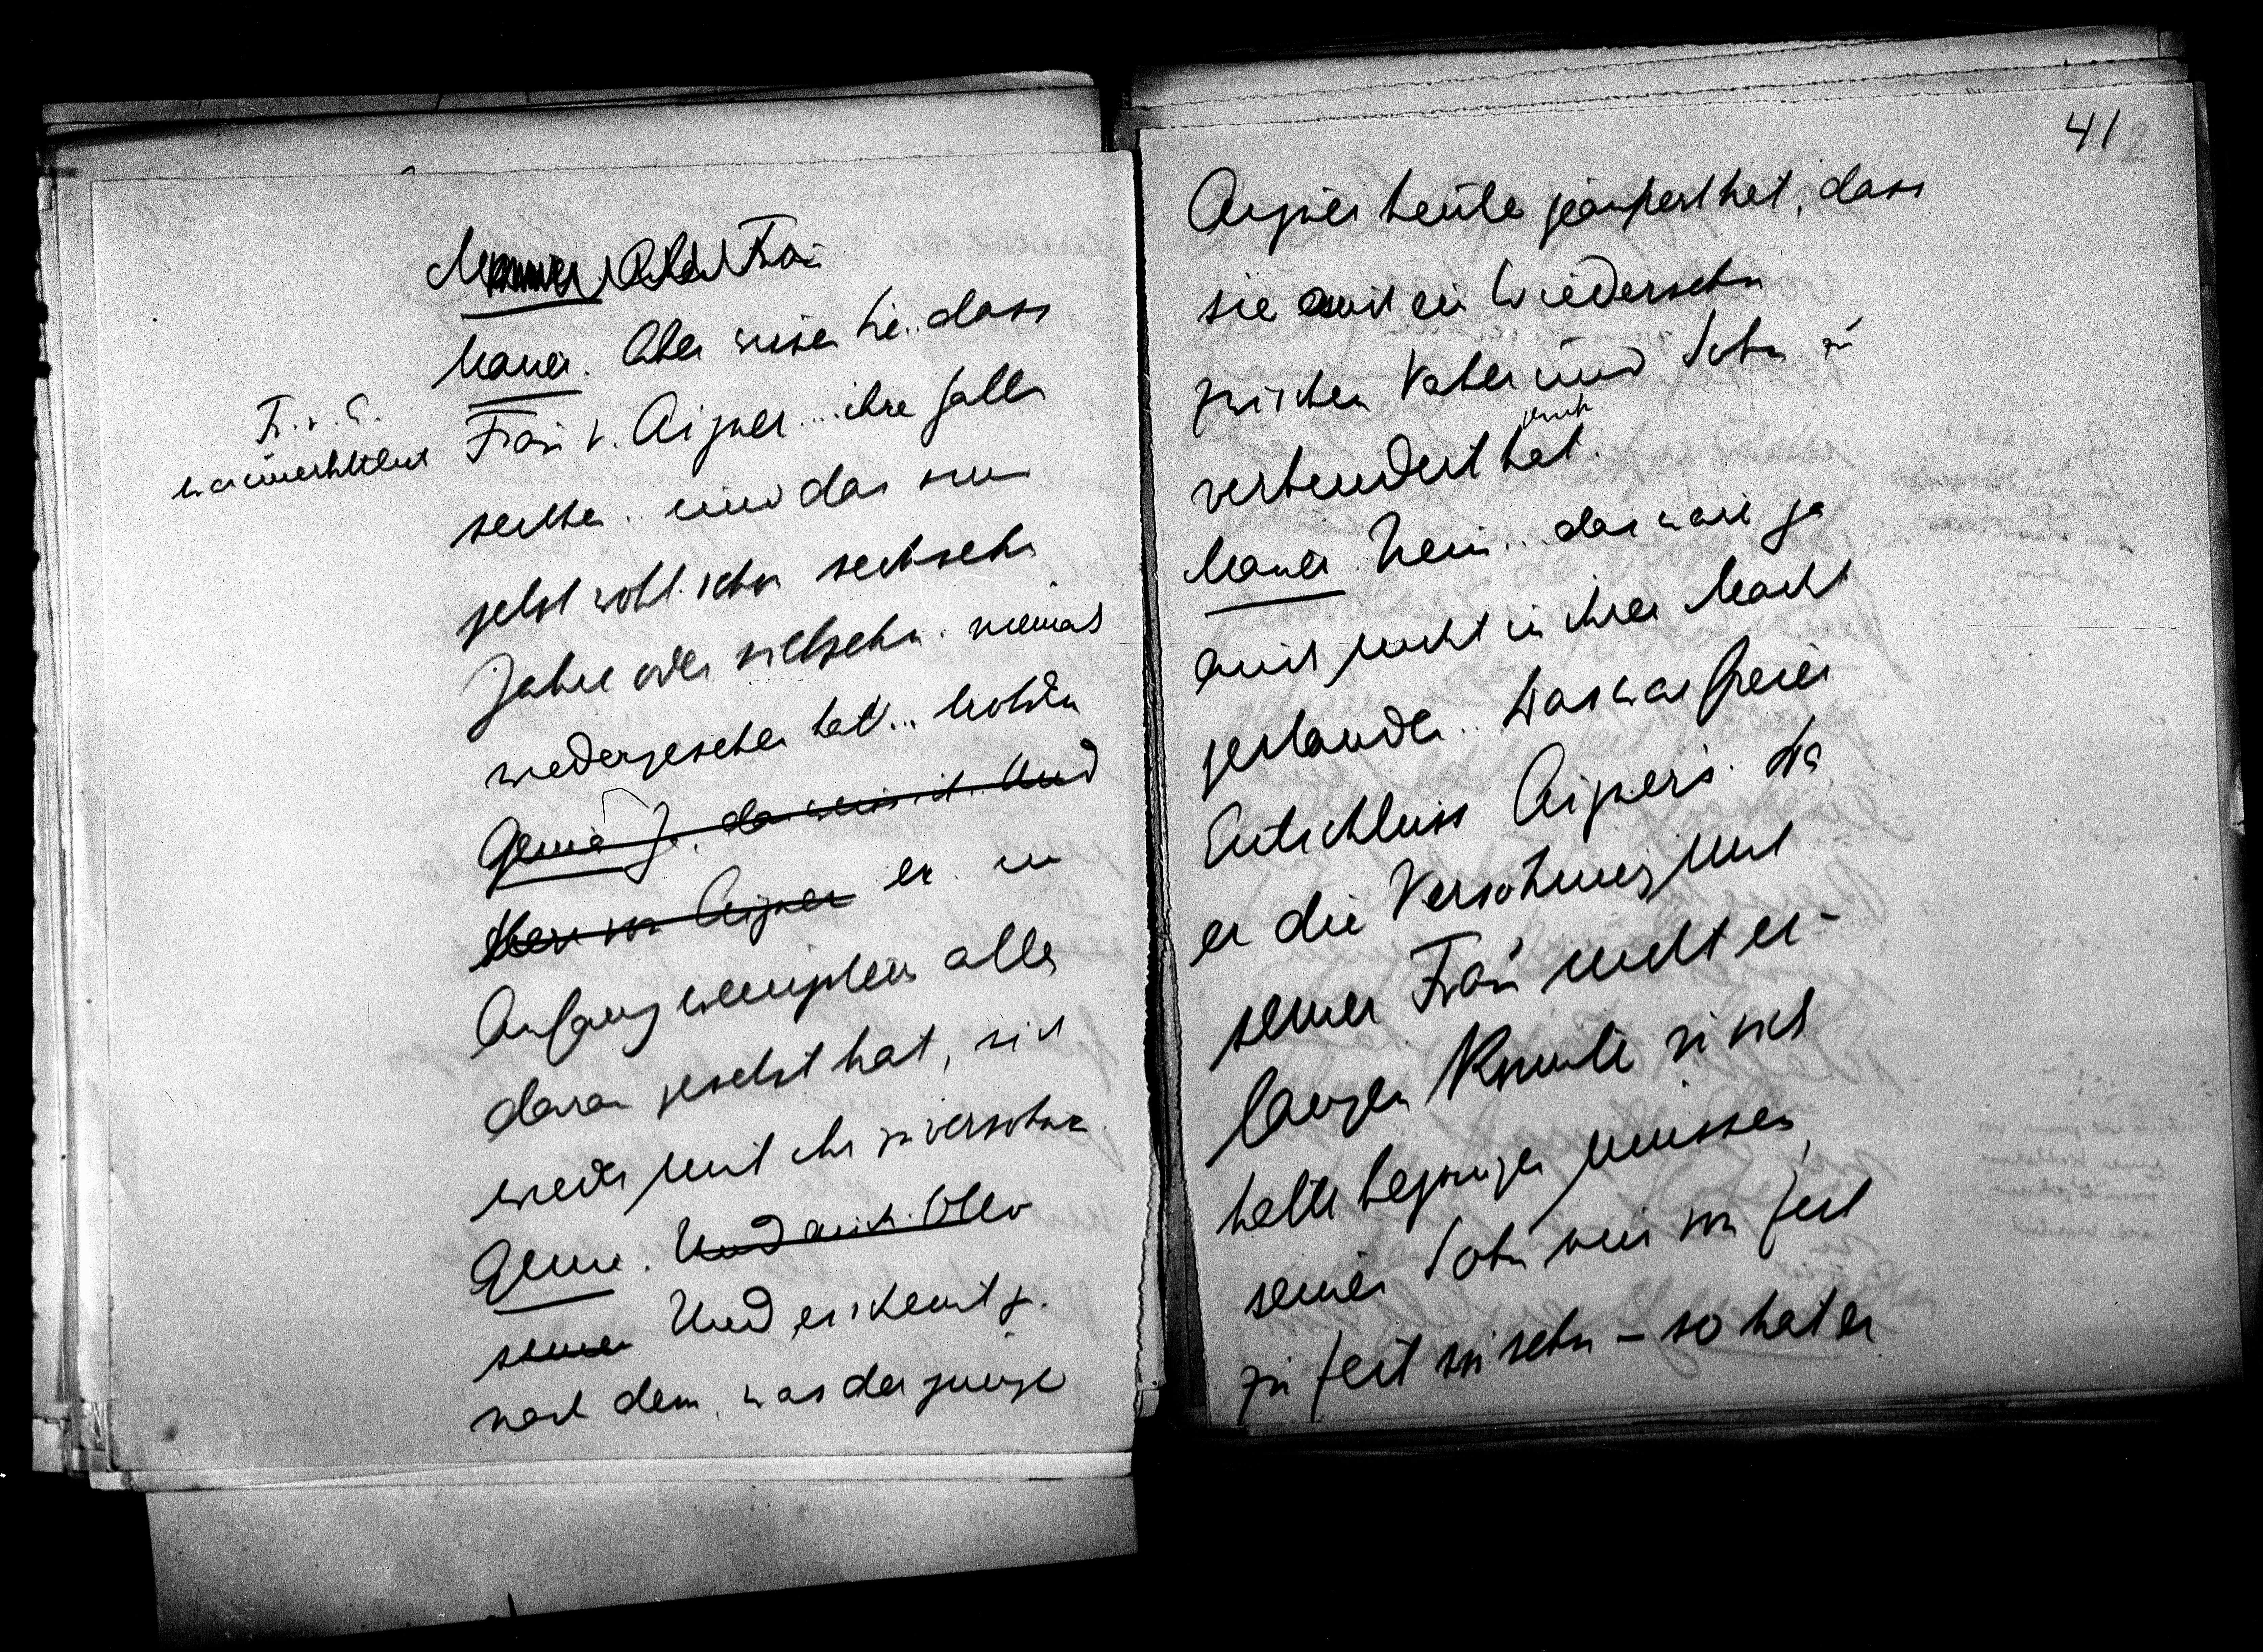 Mauer. Aber Frau
Mauer. Aber wissen Sie.. dass
Frau v. Aigner... ihren Gatten
F. v. A.
unerbittlich
seither.. und das sind
jetzt wohl schon sechzehn
Jahre oder siebzehn. niemals
wiedergesehen hat... trotzdem
Genia Ja, das weiss ich. Und
Herr von Aigner er im
Anfang wenigstens alles
daran gesetzt hat, sich
wieder mit ihr zu versöhnen.
Genia. Und auch Otto
seinen Und es scheint ja.
nach dem, was der junge
412
Aigner heute geäussert hat, dass
sie auch ein Wiedersehn
zwischen Vater und Sohn zu
verhindert hat.
Mauer. Nein... das wäre ja
auch nicht in ihrer Macht
gestanden.. Das war freier
Entschluss Aigners. Da
er die Versöhnung mit
seiner Frau nicht er-
langen konnte und sich
hätte begnügen müssen,
seinen Sohn nur von Zeit
zu Zeit zu sehn – so hat er